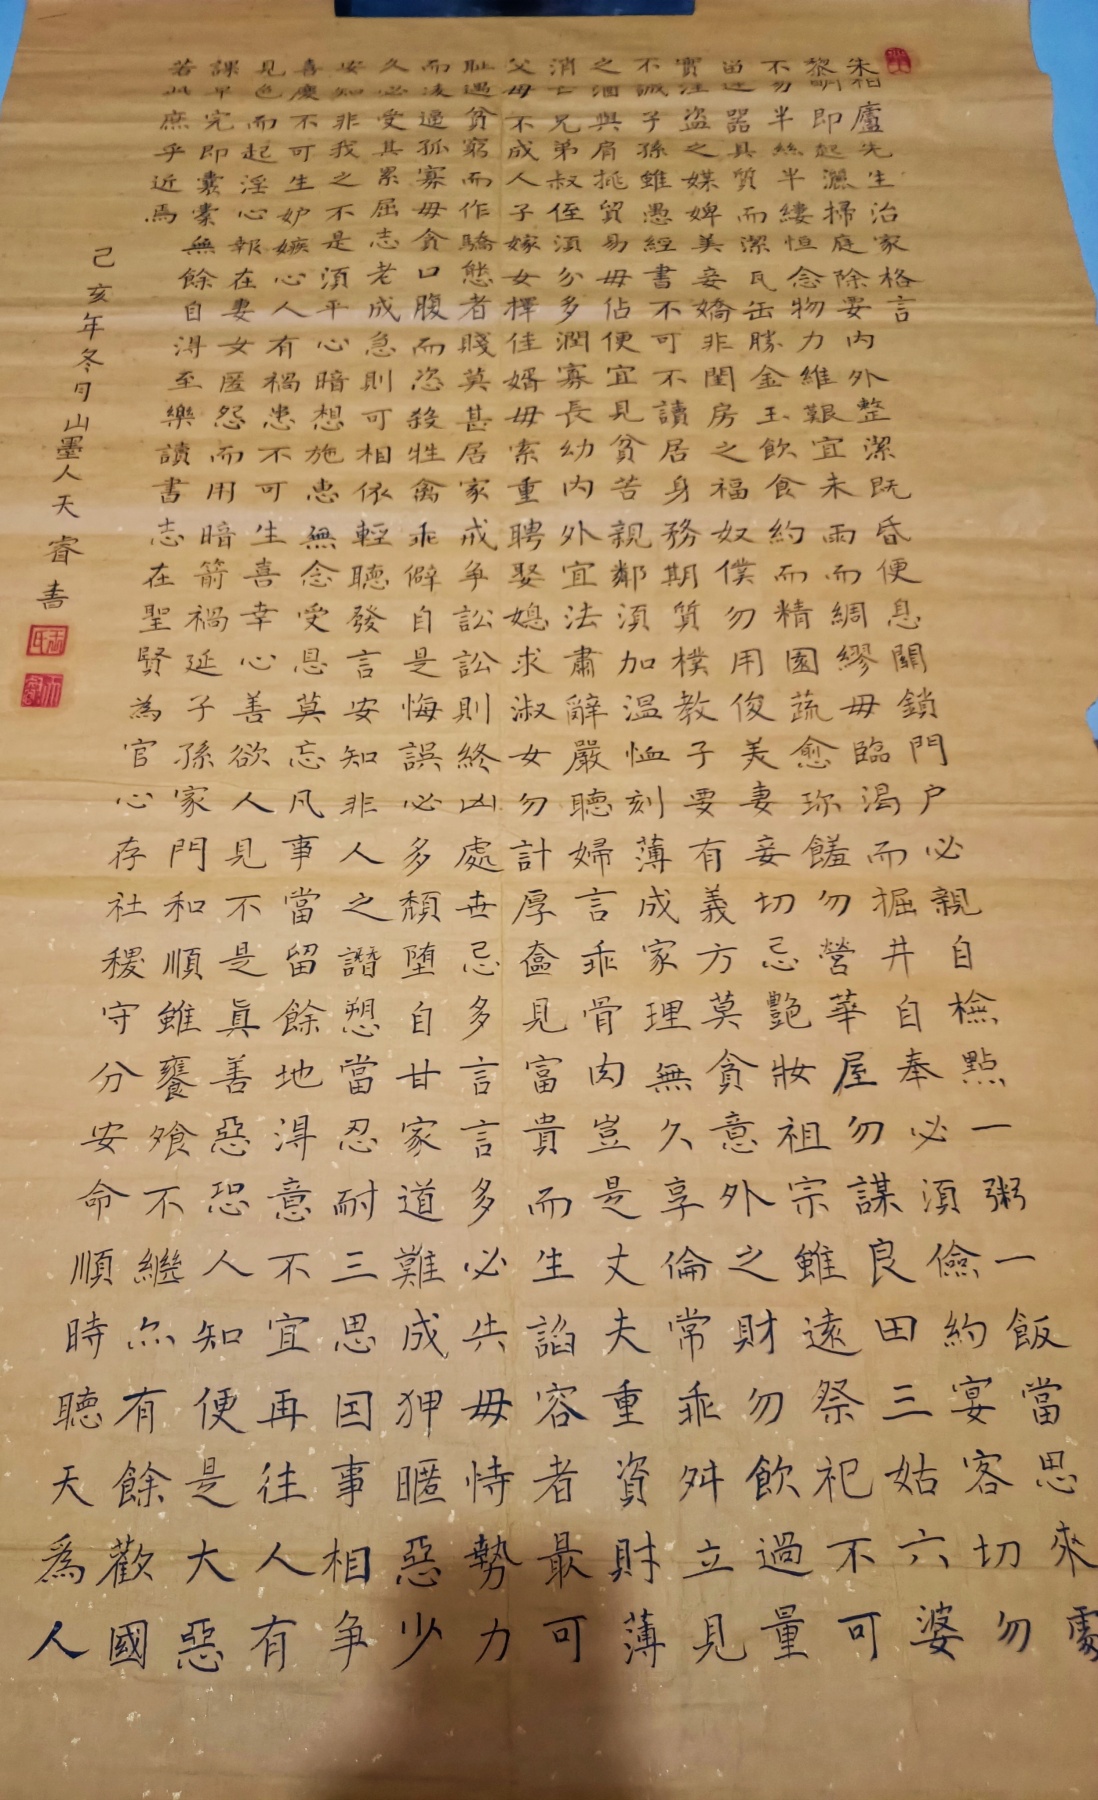 朱柏廬先生治家格言
黎明即起灑掃庭除要內外整潔既昏便息關鎖門户必親自檢點一粥一飯當思來處
不易半絲半縷恒念物力維艱宜未雨而綢繆毋臨渴而掘井自奉必須儉約宴客切勿
留連器具質而潔瓦缶勝金玉飲食約而精園蔬愈珍饈勿營華屋勿謀良田三姑六婆
實淫盜之媒婢美妾嬌非閨房之福奴僕勿用俊美妻妾切忌艷妝祖宗雖遠祭祀不可
不誠子孫雖愚經書不可不讀居身務期質樸教子要有義方莫貪意外之財勿飲過量
之酒與肩挑貿易毋佔便宜見貧苦親鄰須加温恤刻薄成家理無久享倫常乖舛立見
消亡兄弟叔侄須分多潤寡長幼內外宜法肅辭嚴聽婦言乖骨肉豈是丈夫重資財薄
父母不成人子嫁女擇佳婿毋索重聘娶媳求淑女勿計厚奩見富貴而生諂容者最可
恥遇貧窮而作驕態者賤莫甚居家戒争訟訟則終凶處世忌多言言多必失毋恃勢力
而凌逼孤寡毋貪口腹而恣殺牲禽乖僻自是悔誤必多頹堕自甘家道難成狎暱惡少
久必受其累屈志老成急則可相依輕聽發言安知非人之譖愬當忍耐三思因事相争
安知非我之不是須平心暗想施惠無念受恩莫忘凡事當留餘地得意不宜再往人有
喜慶不可生妒嫉心人有禍患不可生喜幸心善欲人見不是真善惡恐人知便是大惡
見色而起淫心報在妻女匿怨而用暗箭禍延子孫家門和順雖饔飧不繼亦有餘歡國
課早完即囊橐無餘自得至樂讀書志在聖賢為官心存社稷守分安命順時聽天為人
若此庶乎近焉
己亥年冬句山墨人天睿書